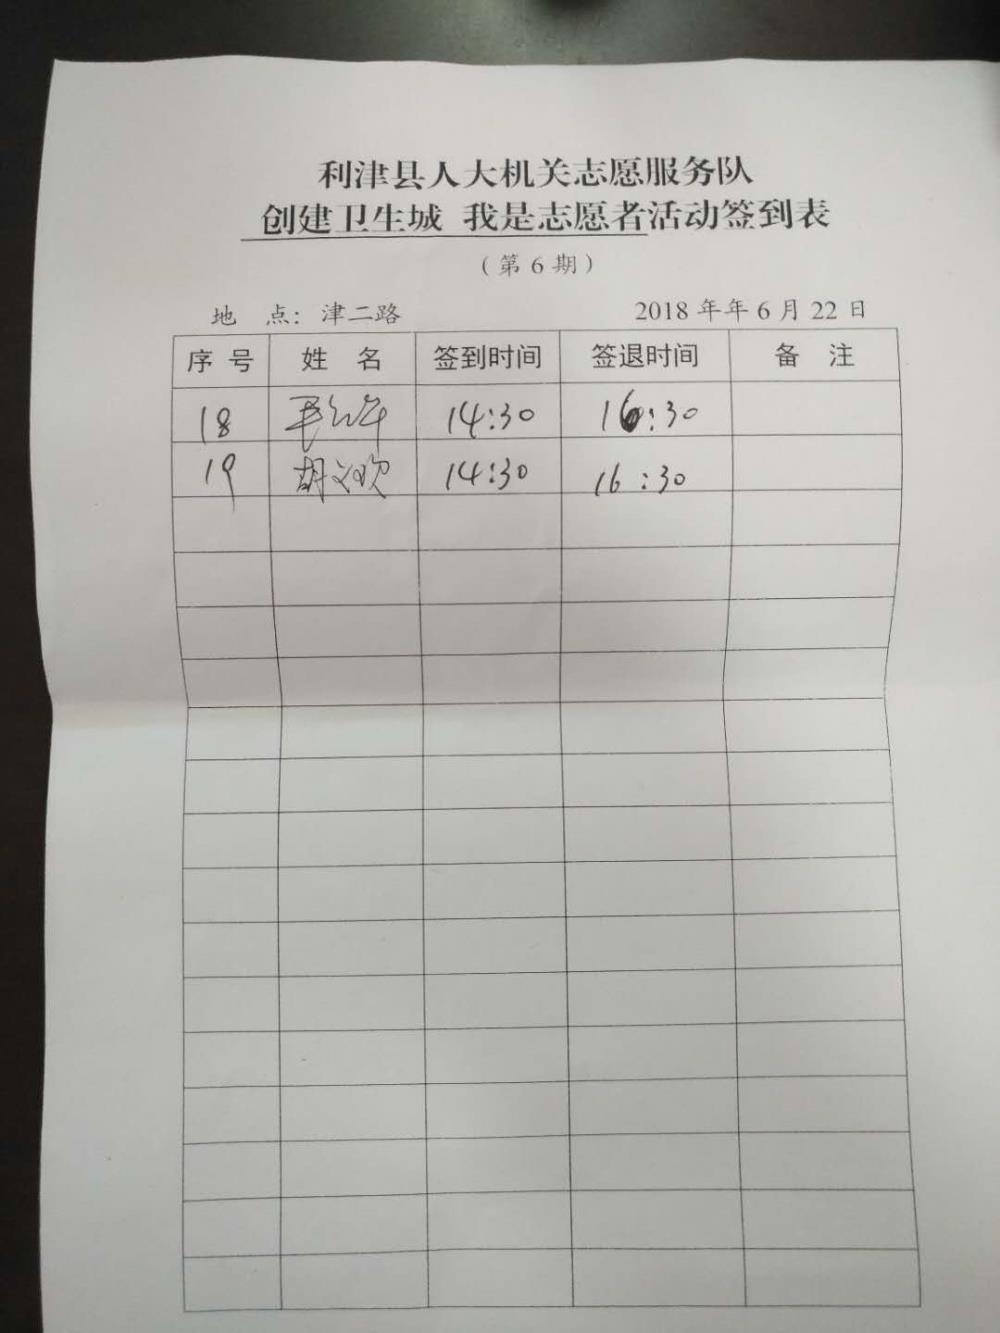 利津县人大机关志愿服务队
创建卫生城 我是志愿者活动签到表
（第6期）
地 点：津二路 2018年年6月22日
序 号 姓 名 签到时间 签退时间 备 注
18 14:30 16:30
19 胡文欢 14:30 16:30